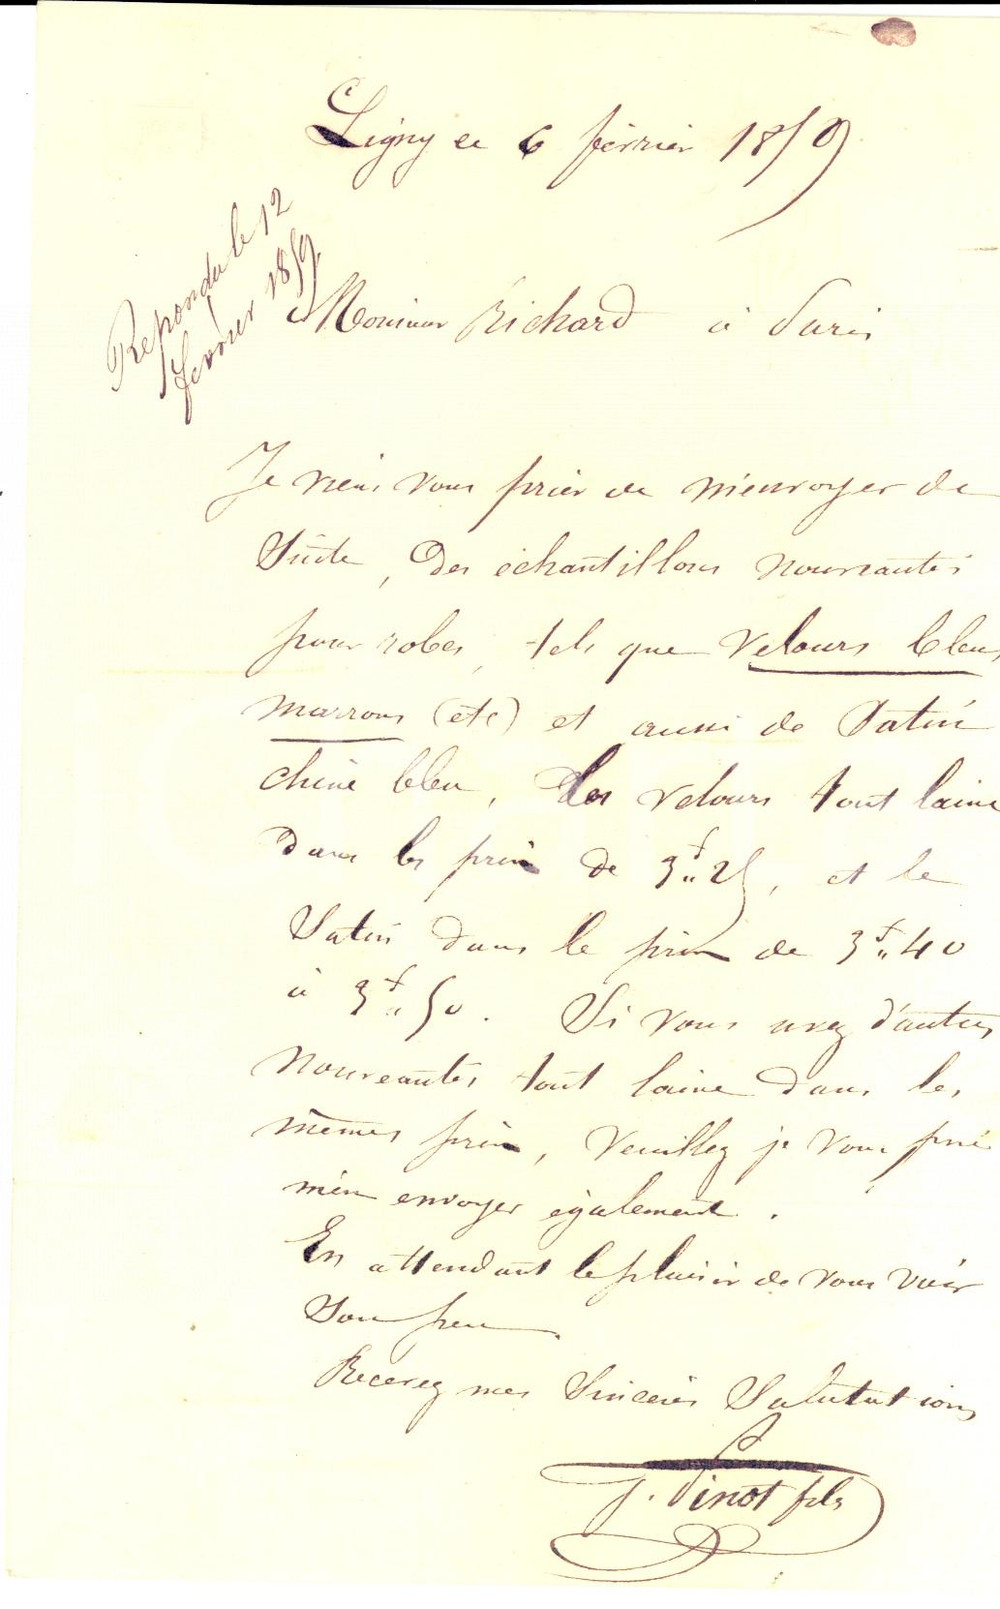 Ligny ce 6 février 1859
Repondu le 12
fevrier 1859
Monsieur Richard à Paris
Je viens vous prier de m'envoyer de
Suite, des échantillons nouveautés
pour robes, tels que Velours bleus
marrons (etc) et aussi de Satin
chine bleu, des velours tout laine
dans les prix de 3f,, 25, et le
Satin dans le prix de 3f,, 40
à 3f,, 50. Si vous avez d'autres
nouveautés tout laine dans les
mêmes prix, veuillez je vous prie
m'en envoyer également.
En attendant le plaisir de vous voir
Sou peu.
Recevez mes Sincères Salutations
J. Pinot fils